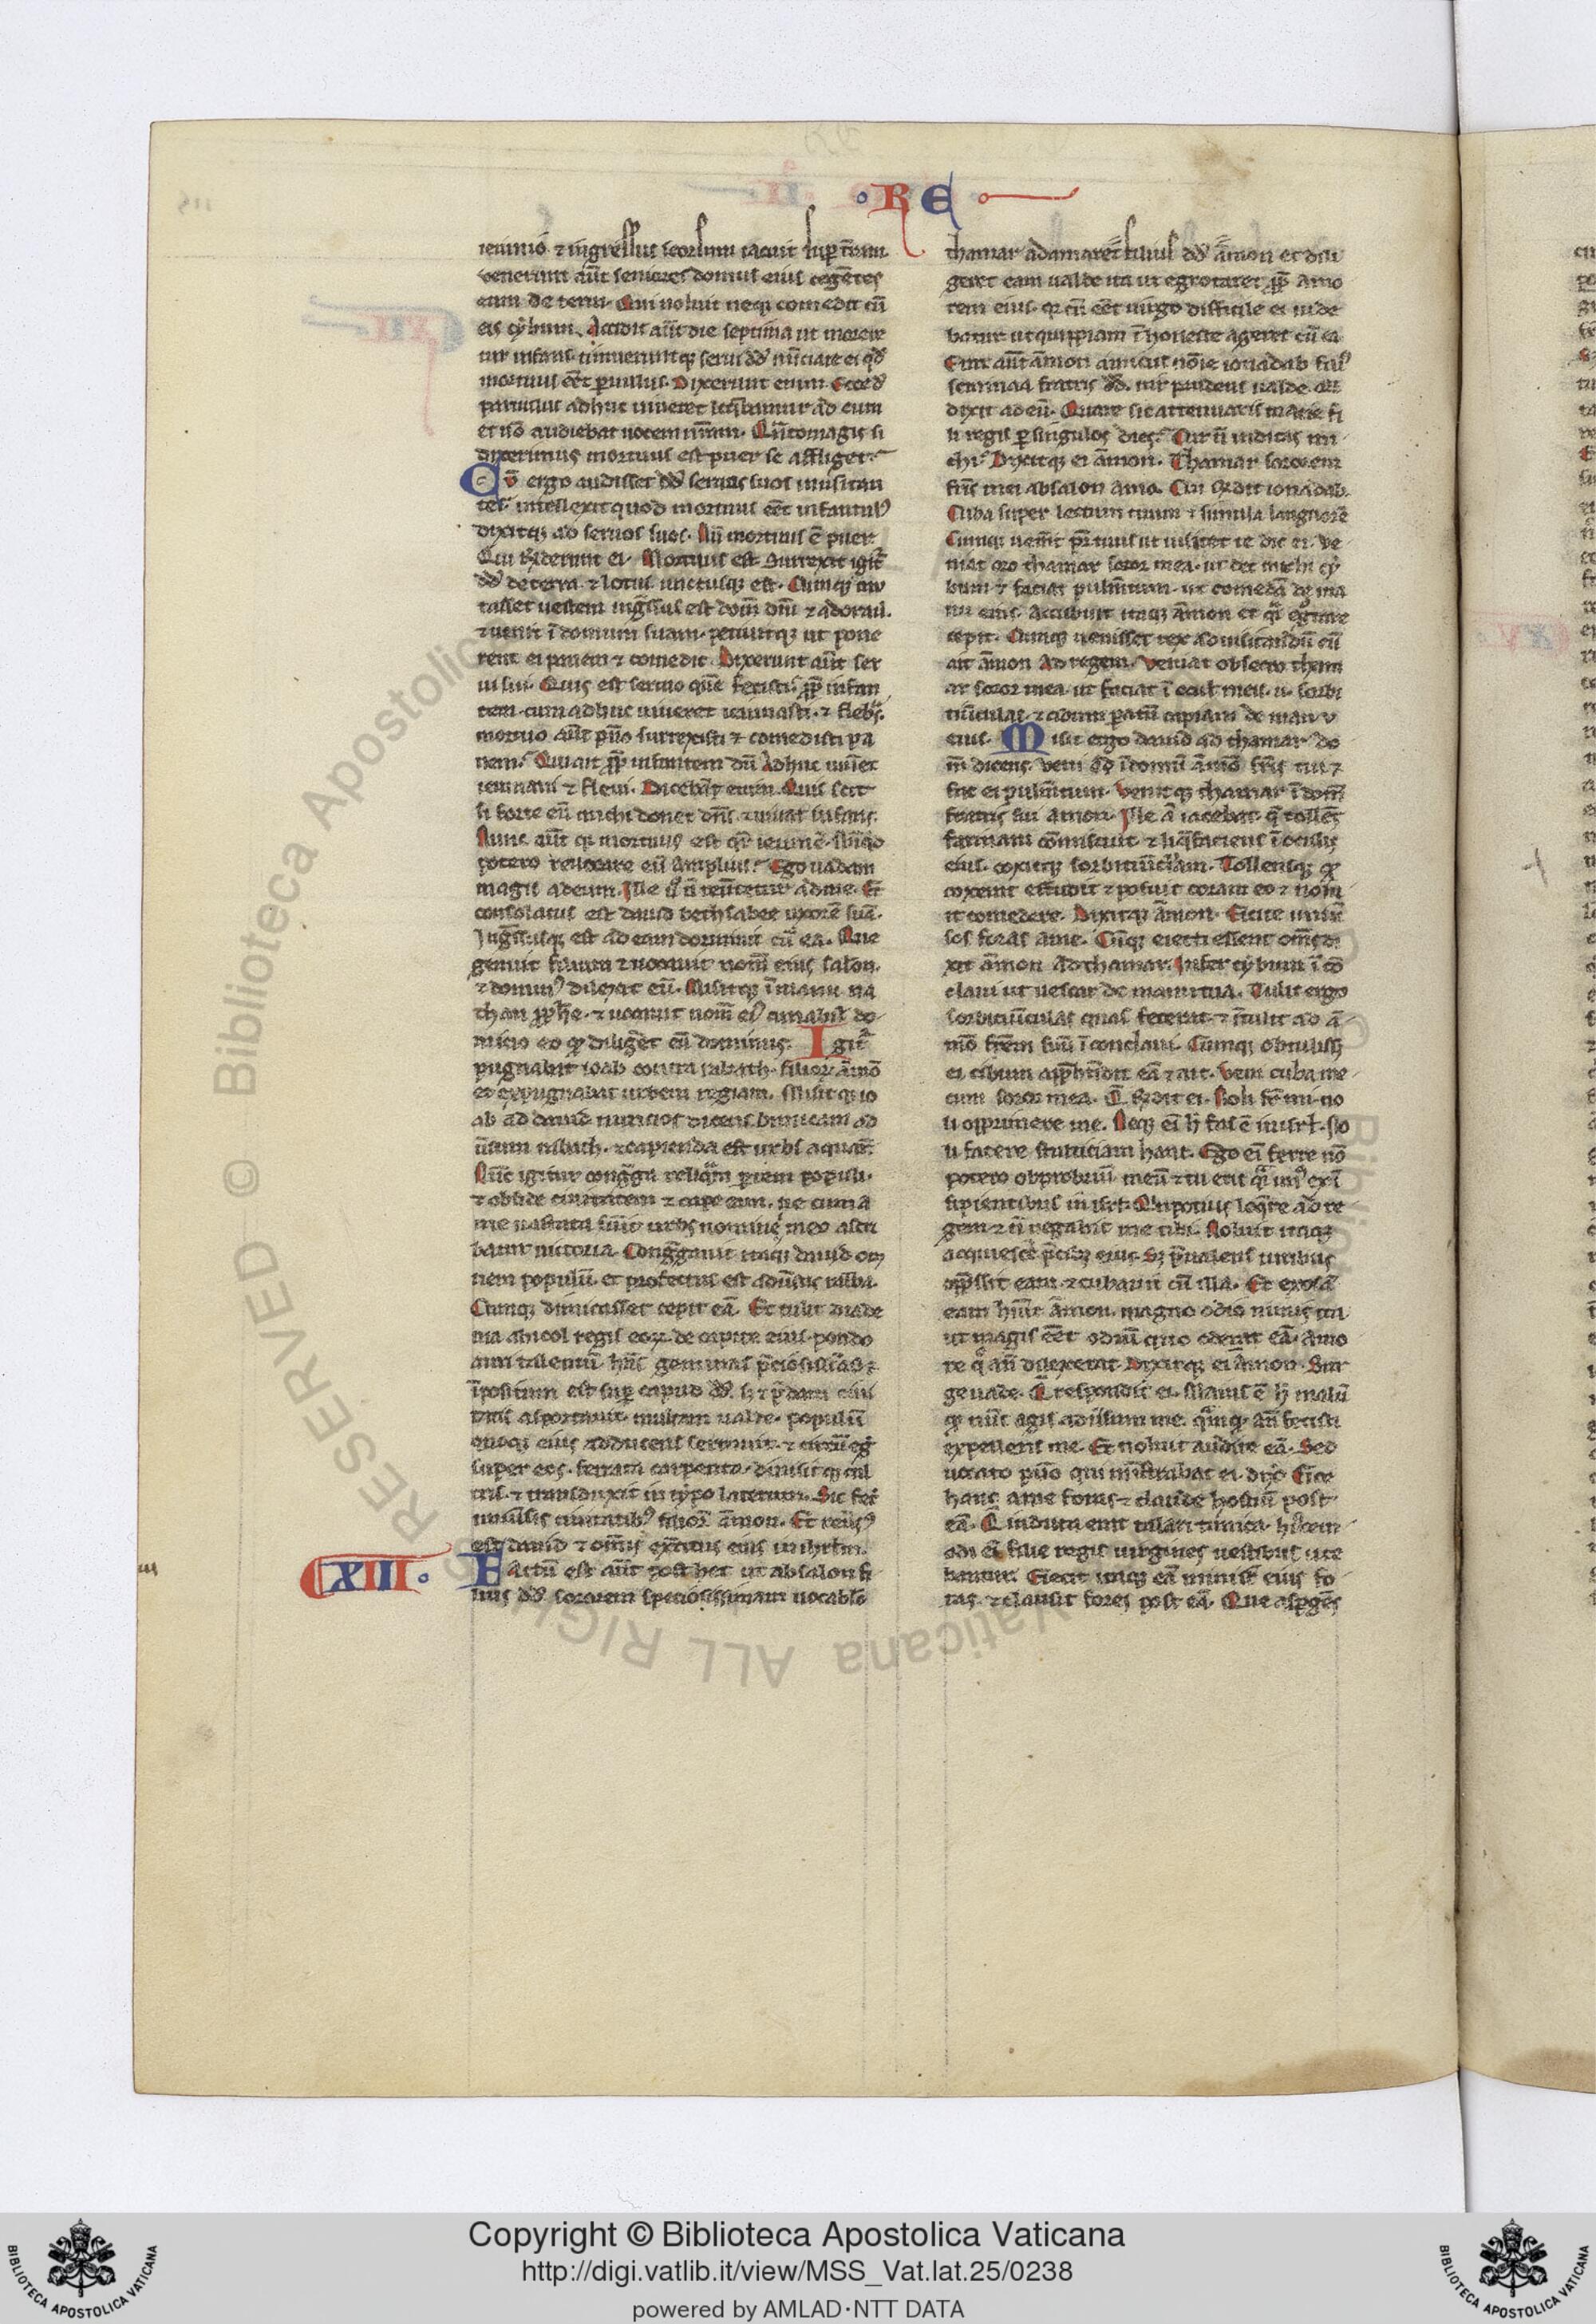 RE
ieiunio ⁊ ingressus seorsum iacuit sup t̄ram.
venerunt aūt seniores domus eius cogētes
eum de terra. Qui noluit neqꝫ comedit cū
eis cybum. Accidit aūt die septima ut morere
tur infans. timueruntqꝫ serui dd̄ nūciare ei qd̄
mortuus eēt paruulus. Dixerunt enim. Ecce
paruulus adhuc uiueret loq̄bamur ad eum
et nō audiebat uocem nr̄am. Qn̄tomagis si
dixerimus mortuus est puer se affliget
Cū ergo audisset dd̄ seruos suos musitan
tes. intellexit quod mortuus eēt infantulꝰ
dixitqꝫ ad seruos suos. Nū mortuus ē puer
Qui rn̄derunt ei. Mortuus est. Surrexit igit᷑
dd̄ de terra. ⁊ lotus unctusqꝫ est. Cumqꝫ mu
tasset uestem ingr̄ssus est dom̄ dn̄i ⁊ adorau.
⁊ uenit ī domum suam. petiuitqꝫ ut pone
rent ei panem ⁊ comedit. Dixerunt aūt ser
ui sui. Quis est sermo quē fecisti. ꝓp̄ infan
tem. cum adhuc uiueret ieiunasti. ⁊ flebas.
mortuo aūt puero surrexisti ⁊ comedisti pa
nem. Qui ait ꝓp̄ infantem dū adhuc uiueret
ieiunaui ⁊ fleui. Dicebā enim. Quis scit
si forte eū michi donet dn̄s ⁊ uiuat infans.
Nunc aūt qꝫ mortuus est qr̄ ieiunē. Nūqd
potero reuocare eū amplius. Ego uadam
magis ad eum. Ille ū n̄ reūtetur ad me. Et
consolatus est dauid bethsabee uxorē suā.
Ingr̄ssusqꝫ est ad eam dormiuit cū ea. Que
genuit filium ⁊ uocauit nom̄ eius salon.
⁊ dominꝰ dilexit eū. Misitqꝫ ī manu na
than ꝓph̄e. ⁊ uocauit nom̄ eiꝰ amabil do
mino eo qꝫ diliḡet eū dominus. Igit᷑
pugnabat ioab contra rabath. filior̄ āmō
et expugnabat urbem regiam. Misitqꝫ io
ab ad dauid nuncios dicens. Dimicaui ad
ūsum rabath. ⁊ capienda est urbs aquar̄.
Nūc igitur congr̄ga reliqam partem populi.
⁊ obside ciuitatem ⁊ cape eam. ne cum a
me uastata fuīt urbs nomine meo ascri
batur uictoria. Congr̄gauit itaqꝫ dauid om
nem populū. et profectus est aduersus rabba.
Cumqꝫ dimicasset cepit eā. Et tulit diade
ma melcol regis eorꝫ de capite eius. pondo
auri talentū. hn̄s gemmas p̄ciosissimas ⁊
īpositum est sup caput dd̄. sꝫ ⁊ p̄dam ciui
tatis asportauit. multam ualde. populū
quoqꝫ eius adducens serrauit. ⁊ circūeg̃
super eos. ferrata carpenta. diuisitqꝫ cul
tris. ⁊ transduxit in typo laterum. Sic fec̃
uniūsis ciuitatibꝰ filior̄ āmon. Et reūsꝰ
est dauid ⁊ om̄is ex̄citus eius in ihrlm̄.
XIII. Factū est aūt post hec ut absalon fi
lius dd̄ sororem speciosissimam uocabl̄o
thamar adamaret filius dd̄ āmon et dili
geret eam ualde ita ut egrotaret ꝓp̄ amo
rem eius. qꝫ cū eēt uirgo difficile ei uide
batur ut quippiam ī honeste ageret cū ea
Erat aūt āmon amicus nōie ionadab filꝰ
semmaa fratris dd̄. uir prudens ualde. qui
dixit ad eū. Quare sic attenuaris macie fi
li regis per singulos dies. Cur n̄ indicas mi
chi. Dixitqꝫ ei āmon. Thamar sororem
fr̄is mei absalon amo. Cui rn̄dit ionadab.
Cuba super lectum tuum ⁊ simula languorē
Cumqꝫ uenīt pr̄ tuus ut uisitet te dic ei. Ve
niat oro thamar soror mea. ut det michi cy
bum ⁊ faciat pulm̄tum. ut comedā de ma
nu eius. Accubuit itaqꝫ āmon et q̄i egrotare
cepit. Cumqꝫ uenisset rex ad uisitandū eū
ait āmon ad regem. Veniat obsecro tham
ar soror mea. ut faciat ī ocul meis. ii. sorbi
tiūculas. ⁊ cibum paratū capiam de manu
eius. Misit ergo dauid ad thamar do
m̄ dicens. Veni ad ī domū āmō fr̄is tui ⁊
fac ei pulm̄tum. Venitqꝫ thamar ī dom̄
fratris sui amon. Ille ā iacebat. q̄ tollēs
farinam cōmiscuit ⁊ liq̄faciens ī oculis
eius. coxitqꝫ sorbitiūclam. Tollensqꝫ qd
coxerat effudit ⁊ posuit coram eo ⁊ nolu
it comedere. Dixitqꝫ āmon. Eicite uniū
sos foras a me. Cūqꝫ eiecti essent om̄s di
xit āmon ad thamar. Infer cybum ī cō
claui ut uescar de manu tua. Tulit ergo
sorbitiūculas quas fecerat. ⁊ ītulit ad ā
mō fr̄em suū ī conclaui. Cūmqꝫ obtuliss;
ei cibum app̄hēdit eā ⁊ ait. Veni cuba me
cum soror mea. Q̄ rn̄dit ei. Noli fr̄ mi. no
li opprimere me. Neqꝫ eī h̄ fas ē in isrl̄. No
li facere stulticiam hanc. Ego eī ferre nō
potero obprobriū meū ⁊ tu eris q̄i unꝰ ex ī
sipientibus in isrl̄. Quin potius loq̄re ad re
gem ⁊ n̄ negabit me tibi. Noluit itaqꝫ
acquiescē p̄cibꝫ eius. Sꝫ p̄ualens uiribus
opp̄ssit eam ⁊ cubauit cū illa. Et exosā
eam hūit āmon. magno odio nimis ita
ut magis eēt odiū quo oderat eā. amo
re qͦ an̄ dilexerat. Dixitqꝫ ei āmon. Sur
ge uade. Q̄ respondit ei. Maius ē h̄ malū
qꝫ nūc agis aduersum me. qm̄qꝫ an̄ fecisti
expellens me. Et noluit audire eā. Sed
uocato puero qui mīstrabat ei. dix̃ Eice
hanc a me foras ⁊ claude hostiū post
eā. Q̄ induta erat talari tunica. hꝰcem
odi eī filie regis uirgines uestibus ute
bantur. Eiecit itaqꝫ eā minist̃ eius fo
ras. ⁊ clausit fores post eā. Que asꝑgēs
Copyright © Biblioteca Apostolica Vaticana
http://digi.vatlib.it/view/MSS_Vat.lat.25/0238
powered by AMLAD·NTT DATA